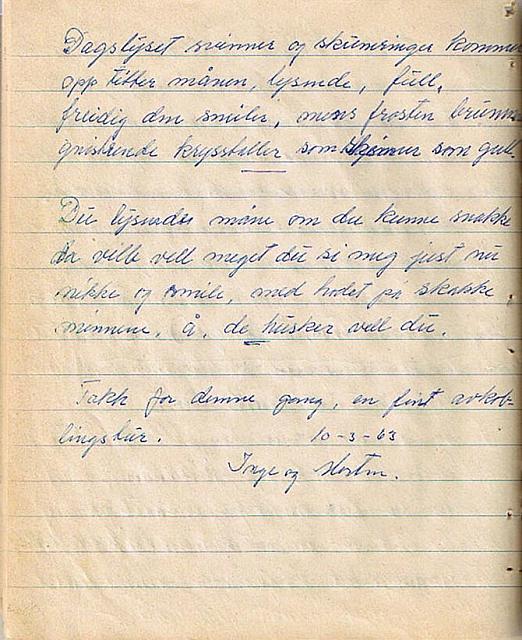 Dagslyset svinner og skumringen kommer
opp titter månen, lysende, full,
freidig den smiler, mens frosten
gnistrende krysstaller som skjinner som gull.
Du lysende måne om du kunne snakke
da ville vell meget du si meg just nu
nikke og smile, med hodet på skakke,
minnene, å, de husker vell du.
Takk for denne gang, en fint avkob-
lingstur.
10-3-63
Inge og